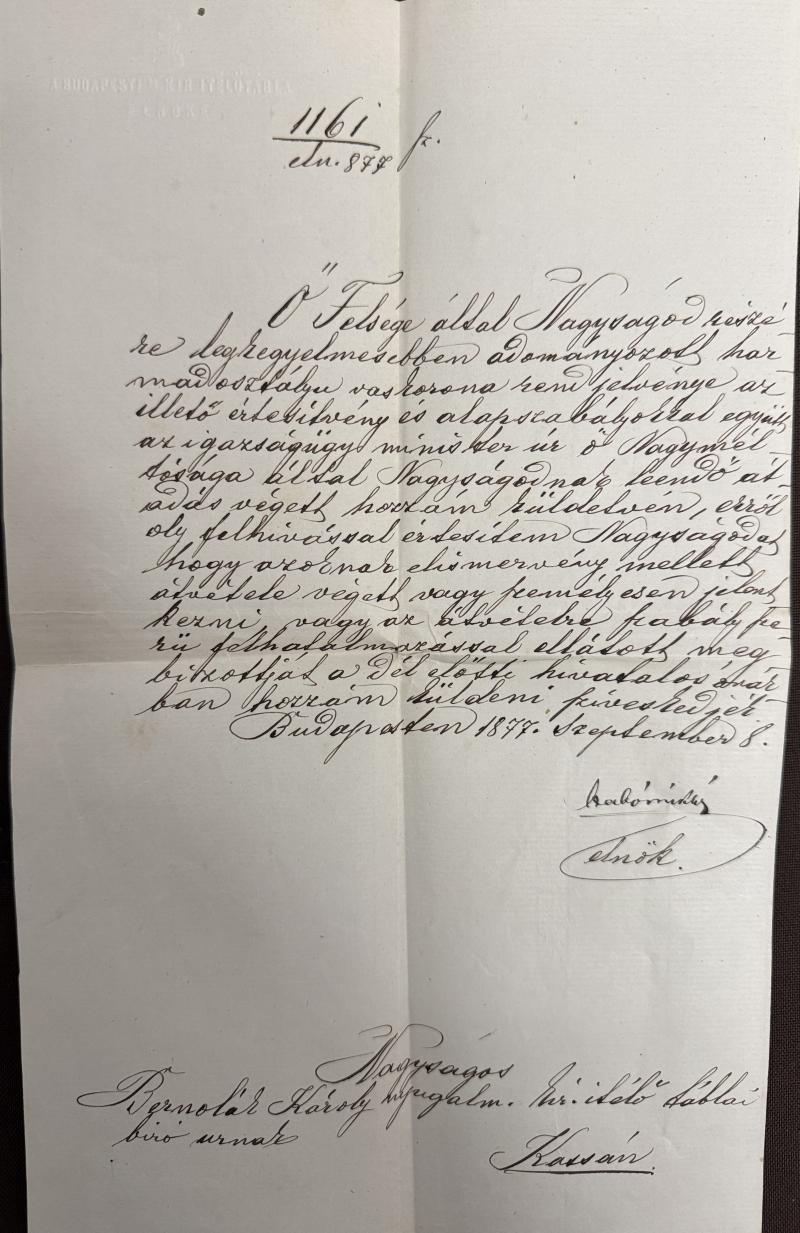 A BUDAPESTI M. KIR. ITÉLŐTÁBLA
ELNÖKE
1161
eln. 877 sz.
Ő Felsége által Nagyságod részé-
re legkegyelmesebben adományozott har
madosztályu vaskorona rend jelvénye az
illető értesítvény és alapszabályokkal együtt
az igazságügy minister ur ő Nagymél-
tósága által Nagyságodnak leendő át-
adás végett hozzám küldetvén, erről
oly felhívással értesítem Nagyságodat
hogy azoknak elismervény mellett
átvétele végett vagy személyesen jelent
kezni, vagy az átvételre szabály sze-
rü felhatalmazással ellátott meg-
bizottját a dél előtti hivatalos órák
ban hozzám küldeni sziveskedjék
Budapesten 1877. Szeptember 8.
Szabó Miklós
elnök.
Nagyságos
Bernolák Károly nyugalm. kir. itélő táblai
biró urnak
Kassán.